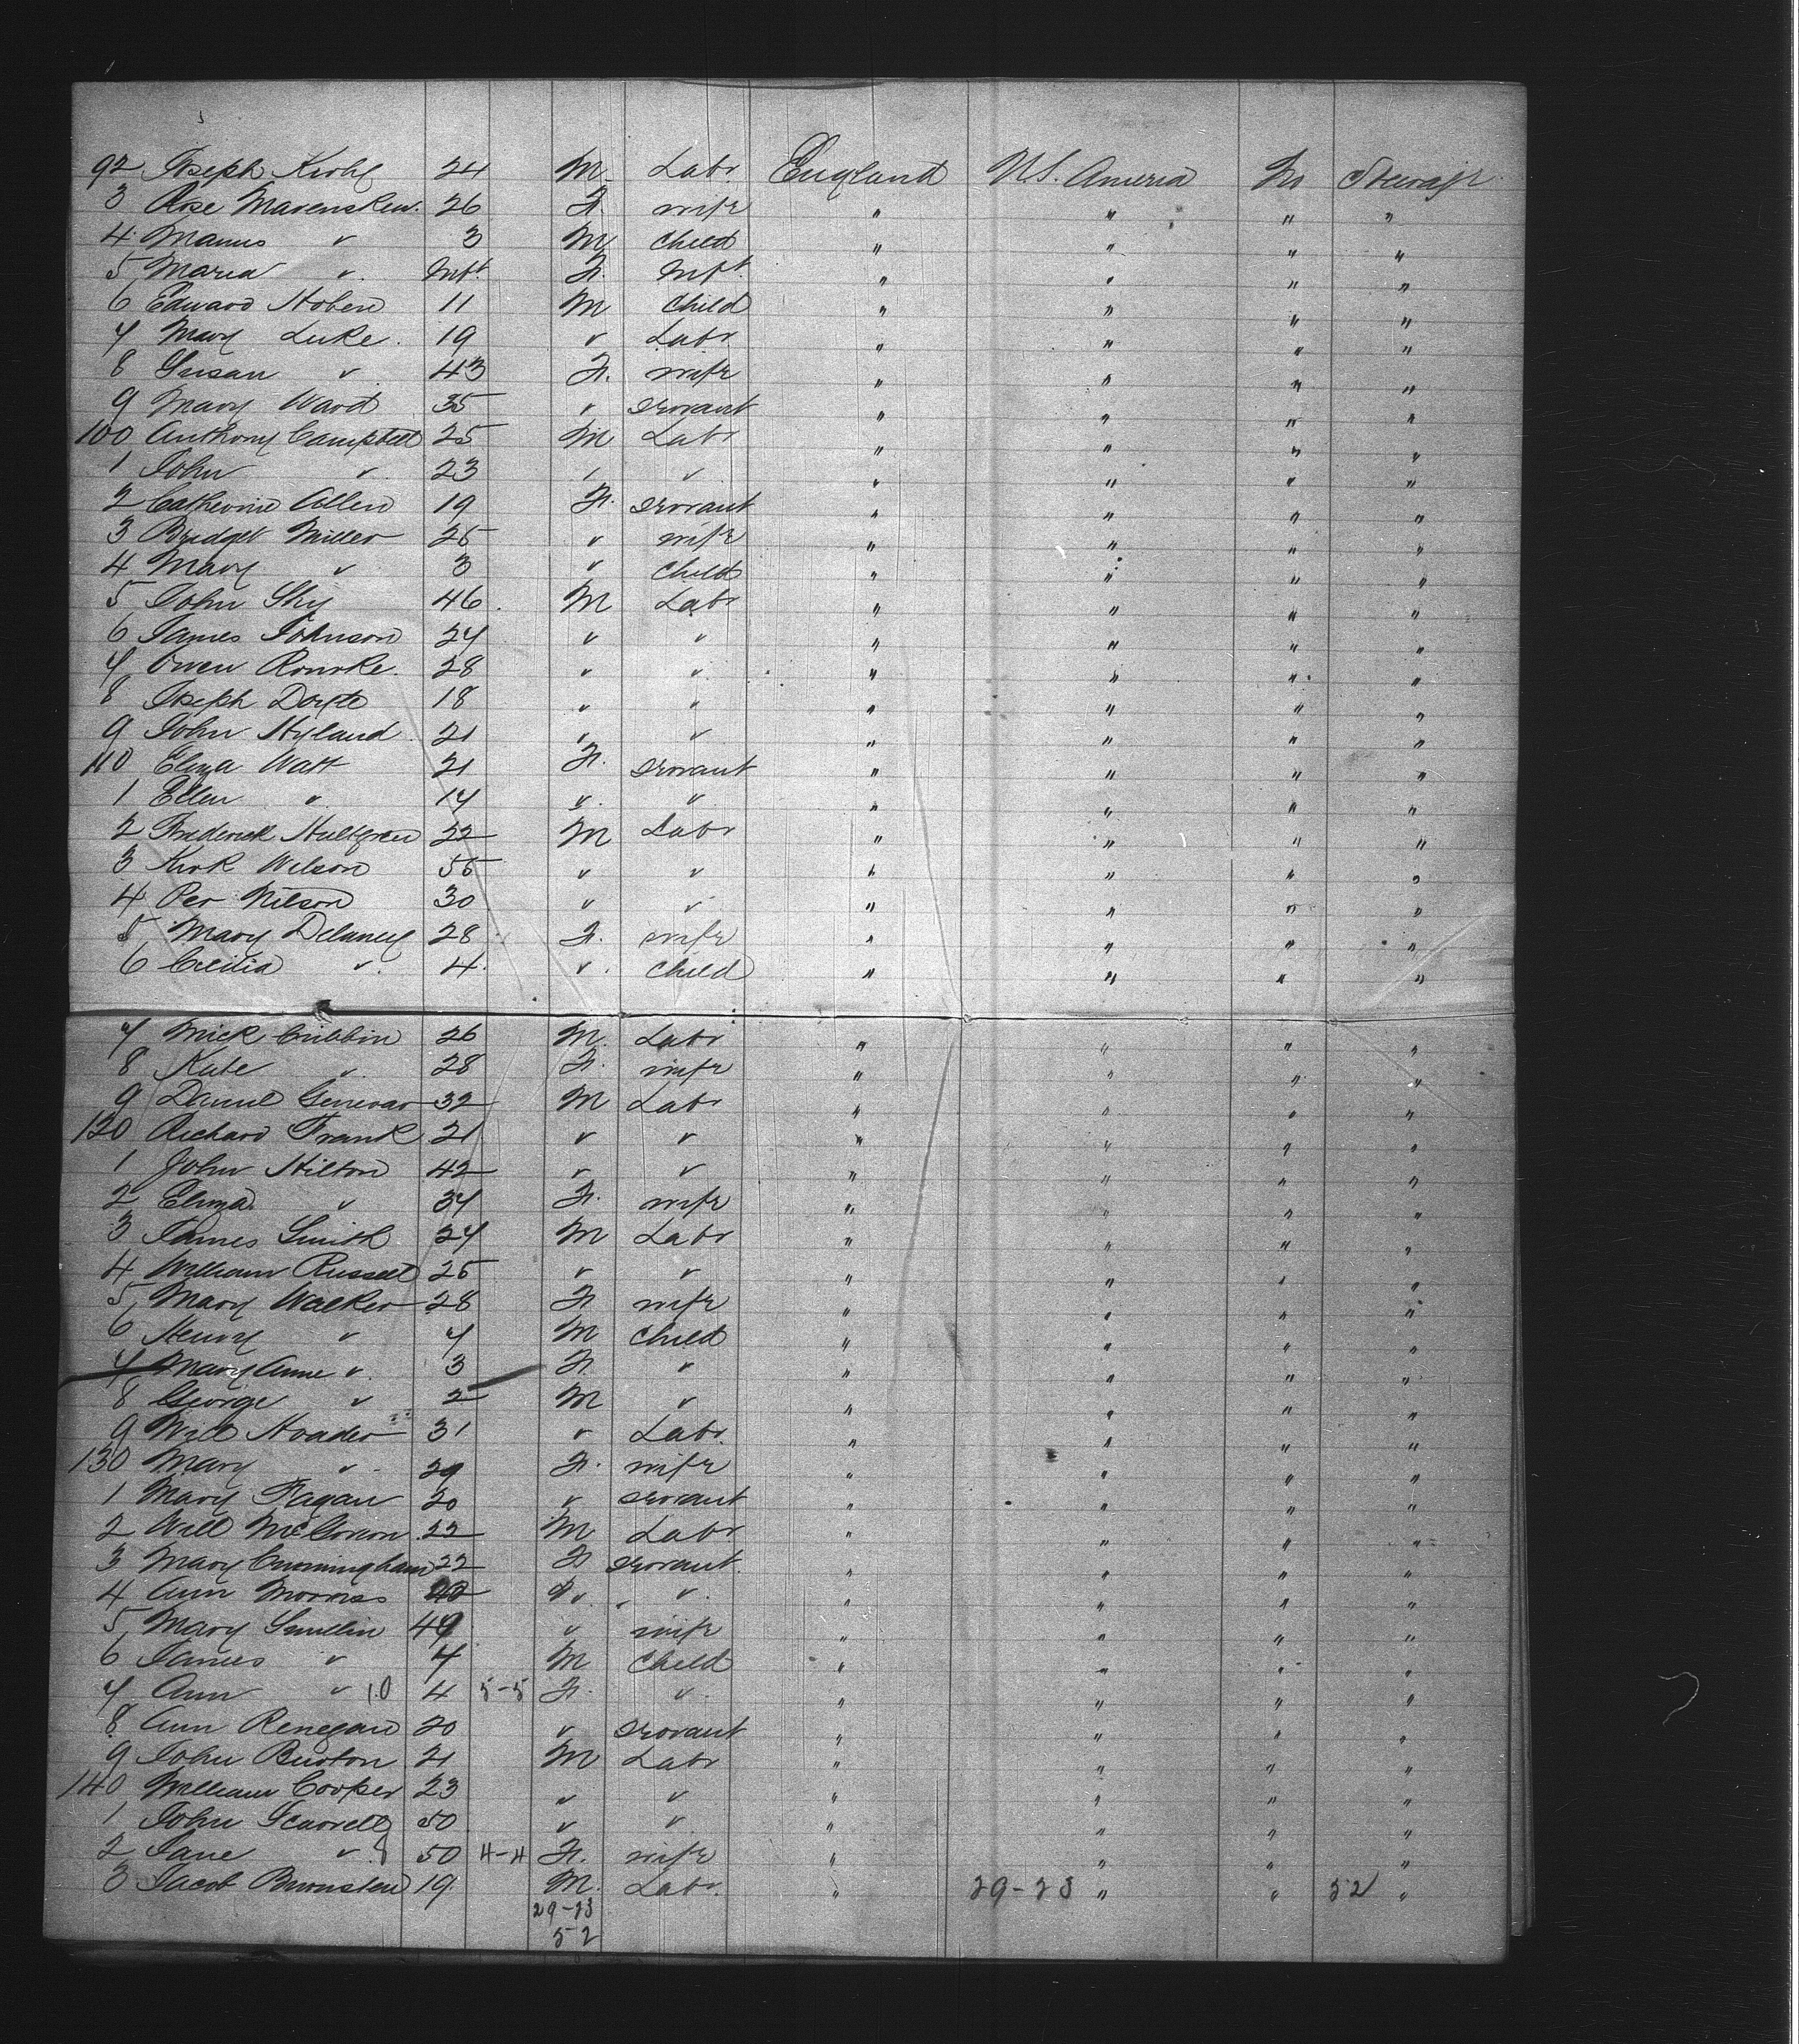 92 Joseph Kirby 24 M. Labr England U.S. America No Steerage
3 Rose 26 F. wife " " " "
4 Manus " 3 M child " " " "
5 Maria " Inft. F. Inft. " " " "
6 Edward Hoben 11 M child " " " "
7 Mary Luke. 19 " Labr " " " "
8 Susan " 43 F. wife " " " "
9 Mary Ward 35 " servant " " " "
100 Anthony Campbell 25 M Labr " " " "
1 John " 23 " " " " " "
2 Catherine Allen 19 F. servant " " " "
3 Bridget Miller 25 " wife " " " "
4 Mary " 3 " child " " " "
5 John Shy 46 M Labr " " " "
6 James Johnson 24 " " " " " "
7 Owen Rourke. 28 " " " " " "
8 Joseph Doyle 18 " " " " " "
9 John Hyland 21 " " " " " "
110 Eliza Watt 21 F. servant " " " "
1 Ellen " 14 " " " " " "
2 Frederick Hultgren 22 M Labr " " " "
3 Kirk Wilson 55 " " " " " "
4 Per Nilson 30 " " " " " "
5 Mary Delaney 28 F. wife " " " "
6 Cecilia " 4 " child " " " "
7 Mick Cribbin 26 M. Labr " " " "
8 Kate " 28 F. wife " " " "
9 Daniel 32 M Labr " " " "
120 Richard Frank 21 " " " " " "
1 John Hilton 42 " " " " " "
2 Eliza " 34 F. wife " " " "
3 James Smith 24 M Labr " " " "
4 William Russell 25 " " " " " "
5 Mary Walker 28 F wife " " " "
6 Henry " 7 M child " " " "
7 Mary Anne " 3 F. " " " " "
8 George " 2 M " " " " "
9 Will Hoader 31 " Labr. " " " "
130 Mary " 29 F. wife " " " "
1 Mary Fagan 20 " servant " " " "
2 Will 22 M Labr " " " "
3 Mary Cunningham 22 F servant. " " " "
4 Ann Morriss 40 F " " " " "
5 Mary Smullin 49 " wife " " " "
6 James " 4 M child " " " "
7 Ann " 10 4 5-5 F. " " " " "
8 Ann Renegan 20 " servant " " " "
9 John Burton 21 M Labr " " " "
140 William Cooper 23 " " " " " "
1 John Scarrell 50 " " " " " "
2 Jane " 8 50 4-4 F. wife " " " "
3 Jacob Burnstein 19 M. Labr. " 29-23 " " 52 "
29-23
52